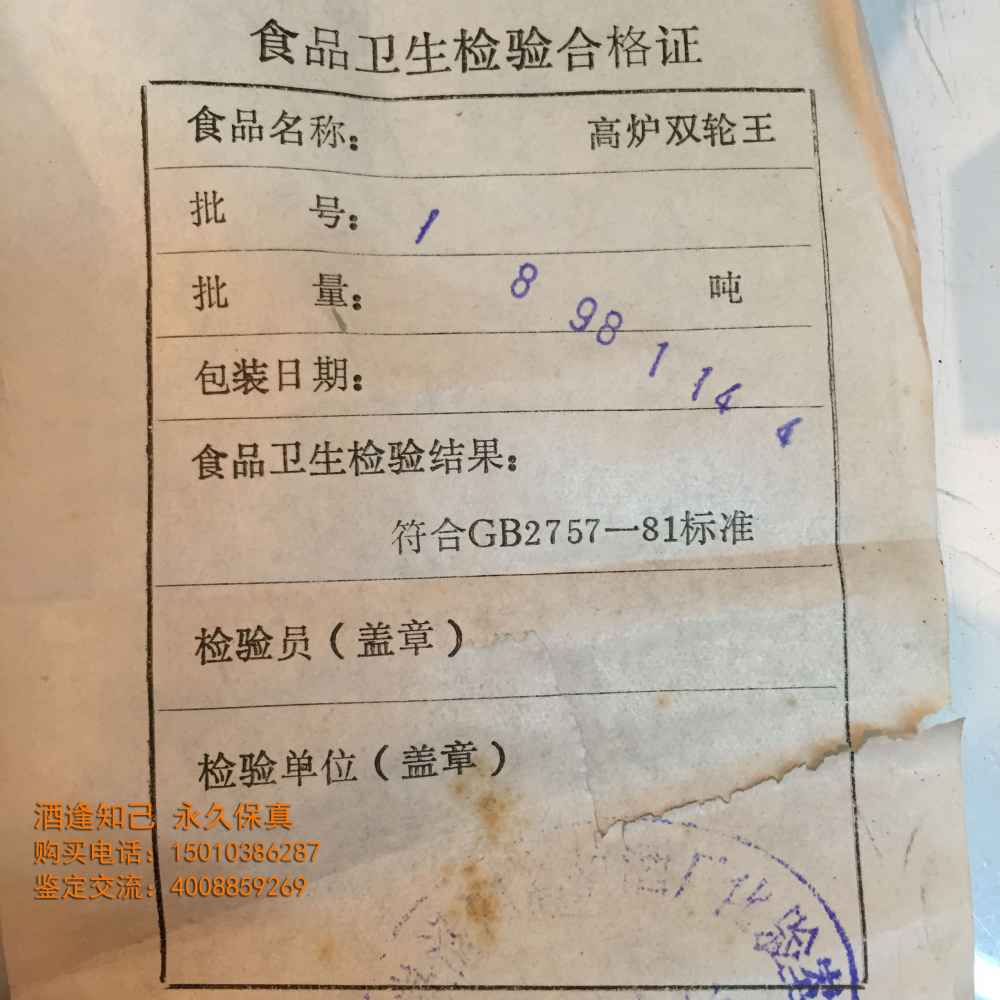 食品卫生检验合格证
食品名称： 高炉双轮王
批 号： 1
批 量： 8 吨
98 1 14
包装日期：
食品卫生检验结果：
符合GB2757—81标准
检验员（盖章）
检验单位（盖章）
酒逢知己 永久保真
购买电话：15010386287
鉴定交流：4008859269